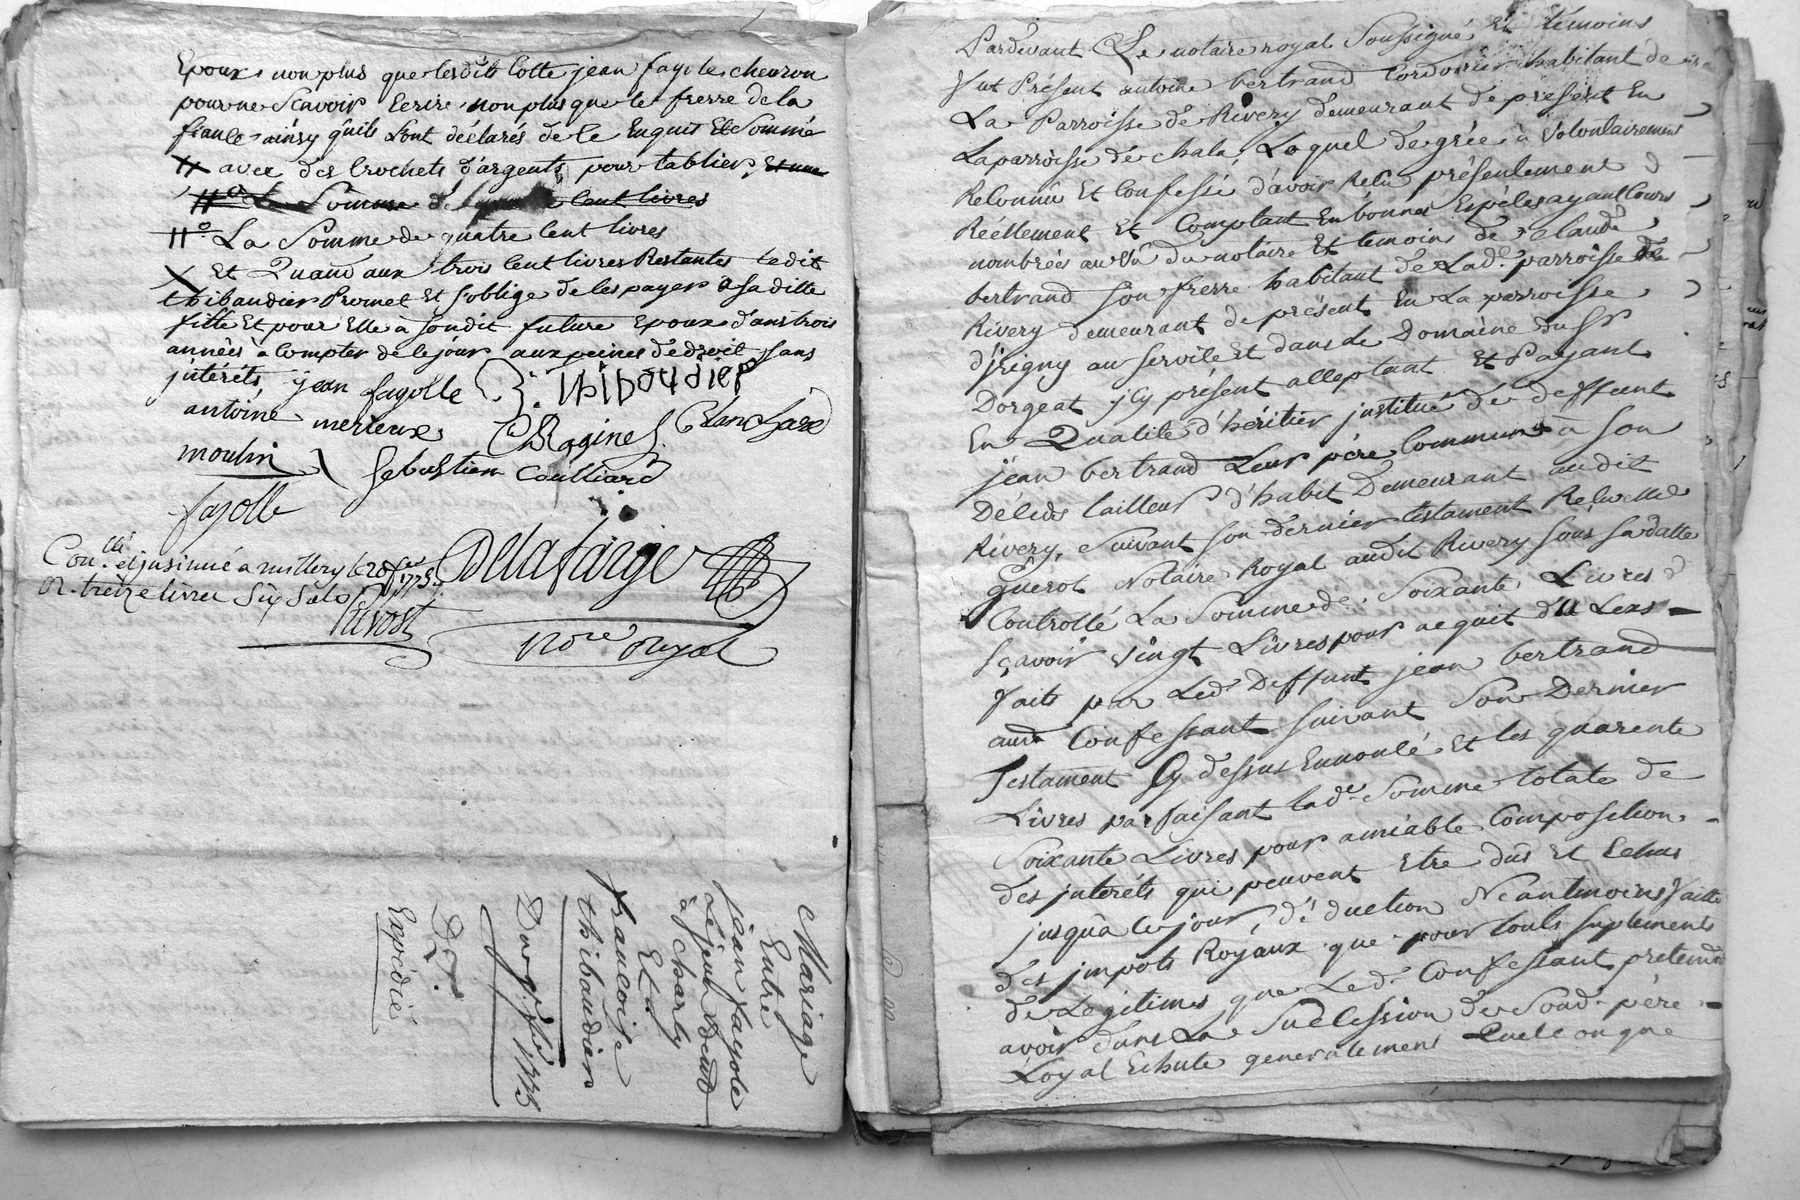 Epoux, non plus que lesdits Cotte jean fayole cheuron
pour ne Scavoir Ecrire, non plus que le frerre de la
fiancé ainsy quils L'ont déclarés de ce Enquis Et Sommé
avec des Crochets d'argents pour tablier, Et une
La Somme de cent livres
La Somme de quatre Cent livres
Et Quand aux trois Cent livres Restantes Ledit
thibaudier Promet Et s'oblige de les payer a sa ditte
fille Et pour Elle à Sondit future Epoux dans trois
années à Compter de Ce jour aux peines de droit Sans
jntérêts,
jean fayolle
thiboudier
antoine merieux
C Ragines
Blanchard
moulin
Sebastien Coulliard
fayolle
Con.llé et jnsinué à millery le 1775
R. treize livres Six Sols
Prvost
Delafarge
No.re Royal
Mariage
Entre
jean fayole
Le jeune De
à charly
Et
francoise
thibaudier
Du 9 1775
Expédié
Pardevant Le notaire royal Soussigné Et témoins
fut Présent antoine bertrand Cordonnier habitant de
La Parroisse de Rivery demeurant de présent En
La parroisse de chala, Lequel de grée à Volontairement
Reconnu Et Confessé d'avoir Reçu présentement
Réellement Et Comptant En bonnes Espéces ayant Cours
nombrées au Vû du notaire Et temoins de Claude
bertrand Son frerre habitant de Lad.e parroisse de
Rivery demeurant de présent En La parroisse
d'jrigny au Service Et dans le Domaine du Sr
Dorgeat jcy présent acceptant Et Payant
En Qualité d'héritier jnstitué de deffunt
jean bertrand Leur père Commun a Son
Décés tailleur d'habit Demeurant audit
Rivery, Suivant Son dernier testament Reçu Me
guerot Notaire Royal audit Rivery Sous Sa datte
Controllé La Somme de Soixante Livres
Sçavoir Vingt Livres pour acquit du Legs
faits par Led. Deffunt jean bertrand
aud. Confessant Suivant Son Dernier
Testament Cy dessus Ennoncé Et les quarente
Livres parfaisant lad.e Somme totale de
Soixante Livres pour amiable Composition
des jnterêts qui peuvent Etre dûs Et Echus
jusqu'a Ce jour déduction Neantmoins faitte
des jmpots Royaux que pour touts Suplements
de Légitimes que Led. Confessant pretendoit
avoir dans La Succession de Soud. père
Loyal Echute generalement Quelconque